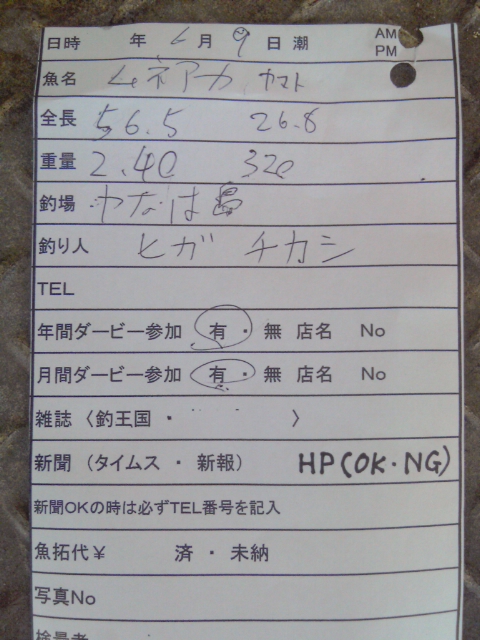 日時 年 6月 9日 潮 AM PM
魚名 ムネアカ ヤマト
全長 56.5 26.8
重量 2.40 320
釣場 やなは島
釣り人 ヒガ チカシ
TEL
年間ダービー参加 有 ・ 無 店名 No
月間ダービー参加 有 ・ 無 店名 No
雑誌 〈釣王国 ・ 〉
新聞 (タイムス ・ 新報) HP(OK・NG)
新聞OKの時は必ずTEL番号を記入
魚拓代¥ 済 ・ 未納
写真No
検量者